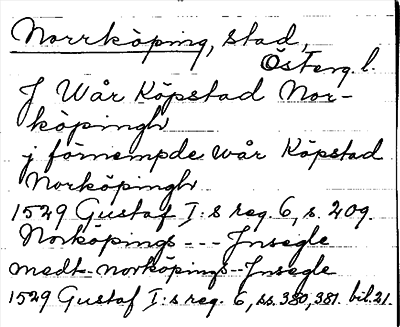 Norrköping, stad,
Österg. l.
J Wår Köpstad Nor-
köpingh
j förnempde wår Köpstad
Norköpingh
1529 Gustaf I:s reg. 6, s. 209.
Norköpings --- Jnsegle
medt Norköpings -- Jnsegle
1529 Gustaf I:s reg. 6, ss. 380, 381. bil. 21.